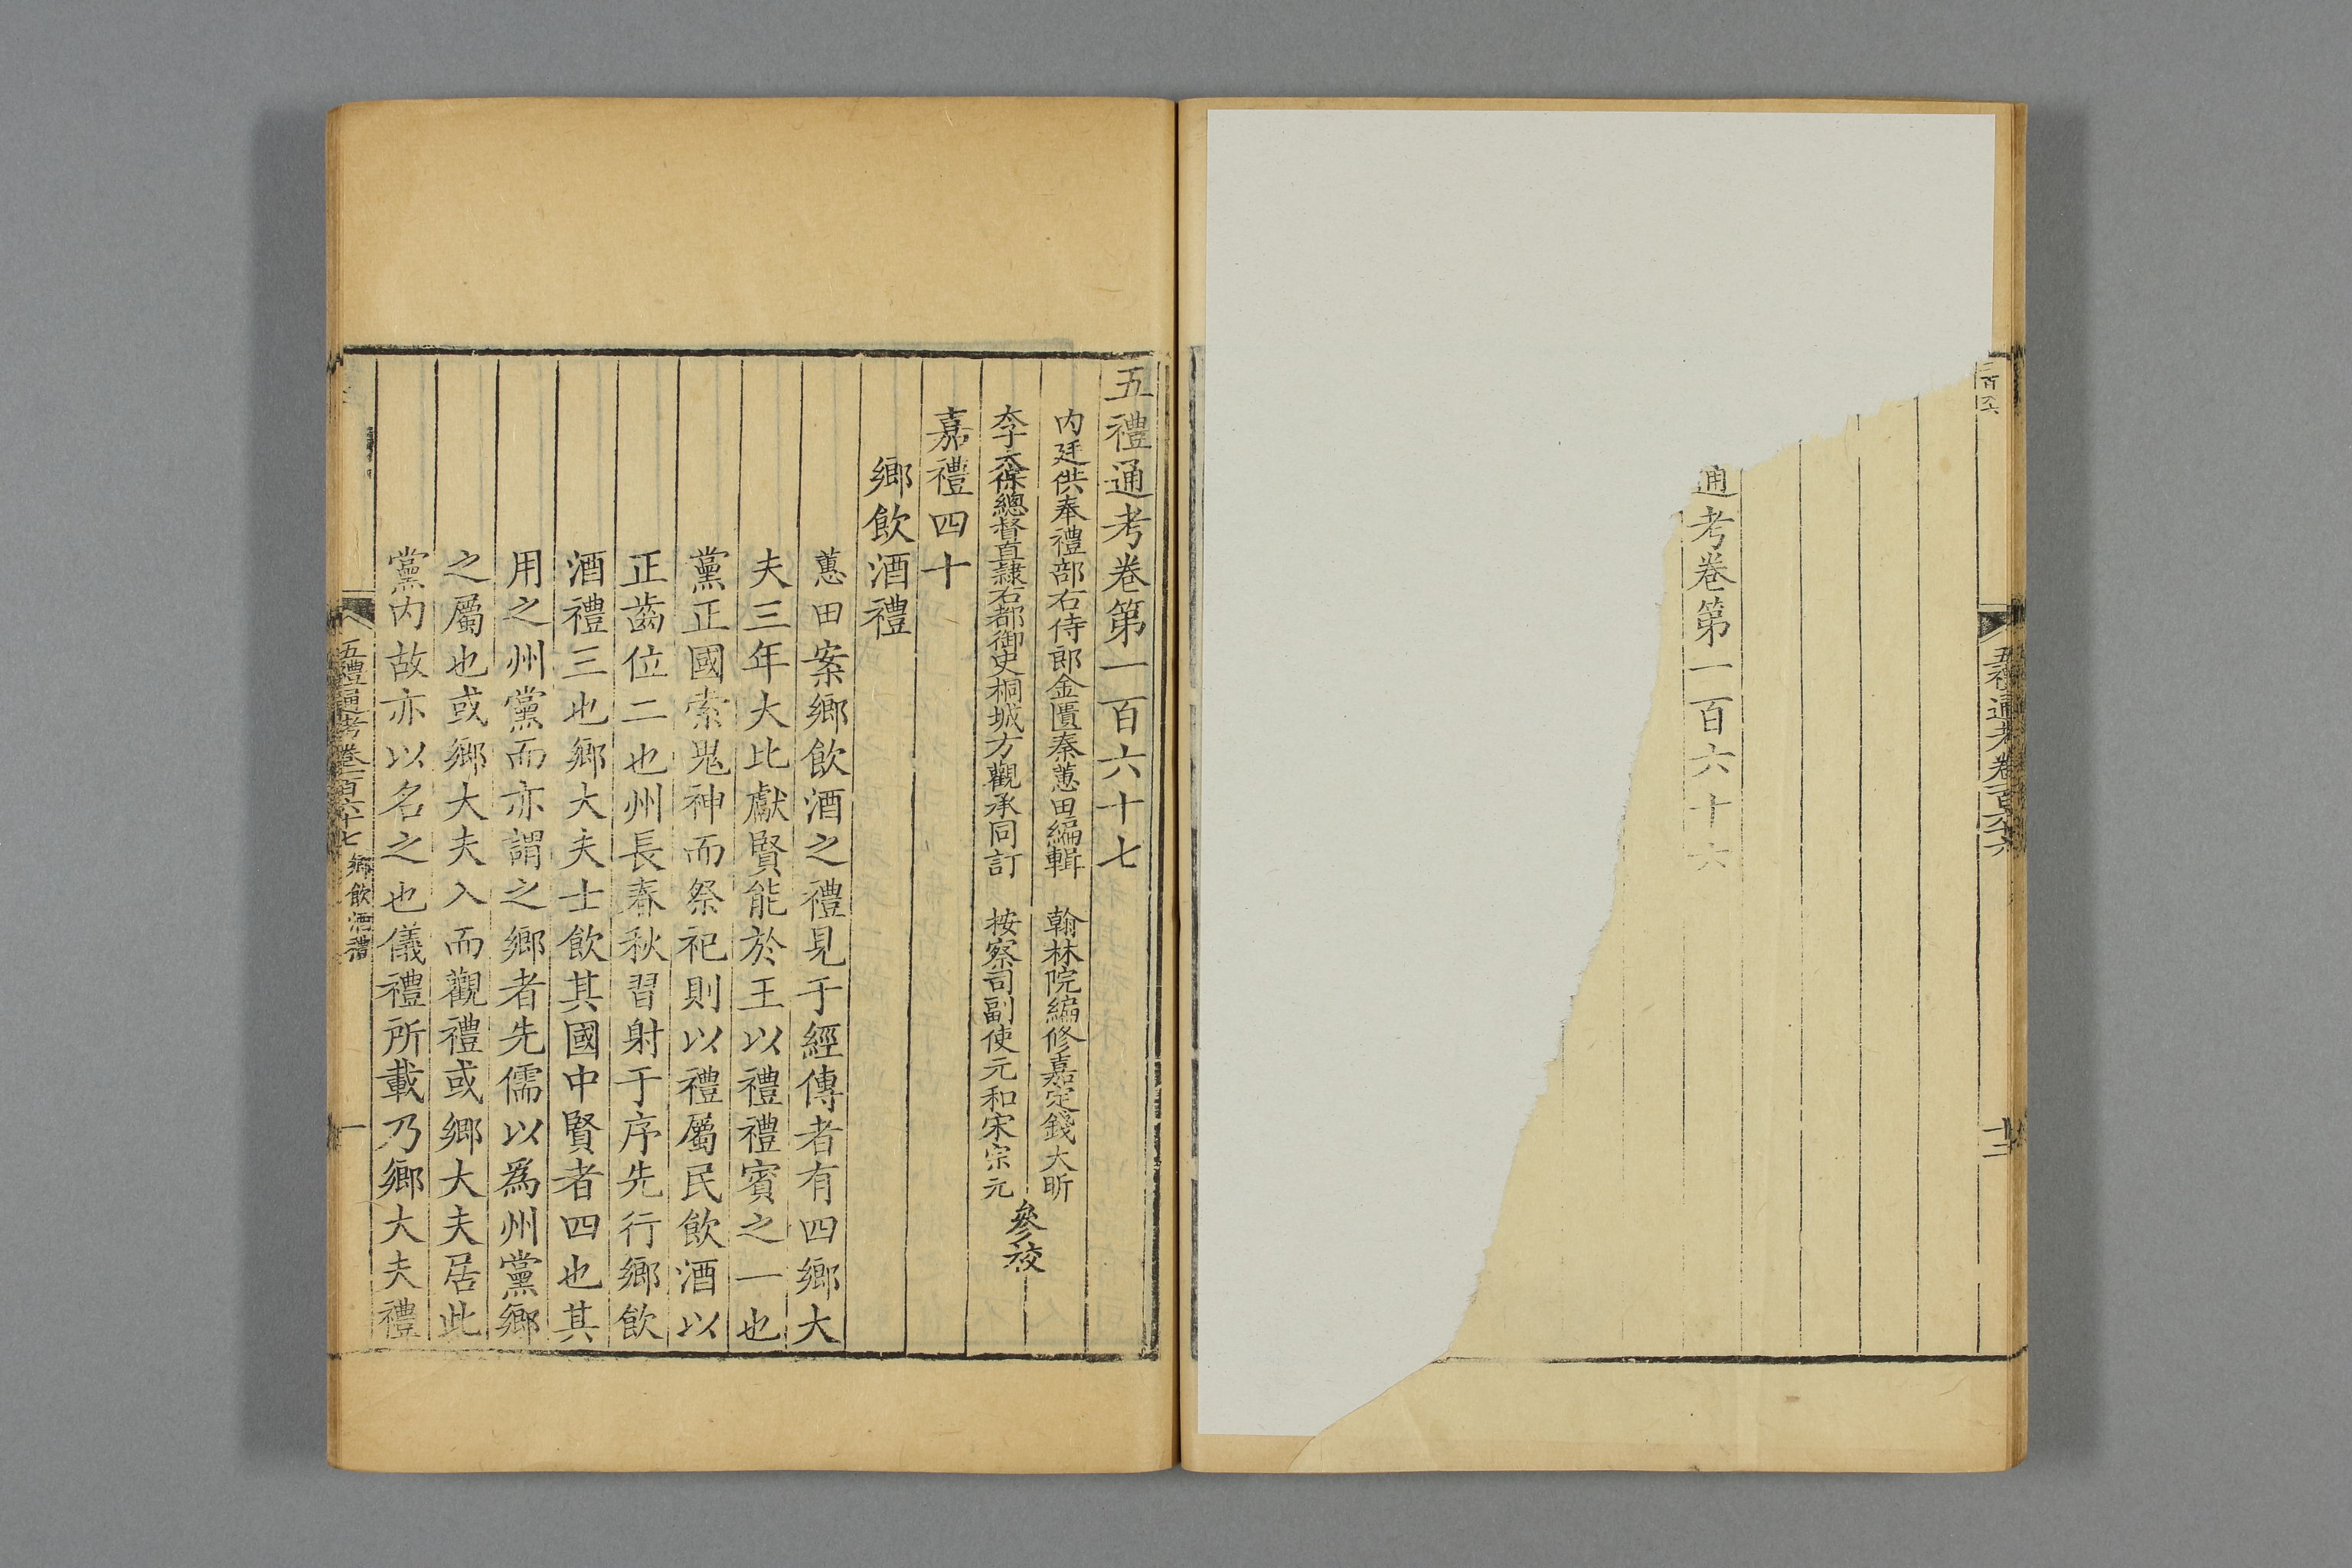 通考卷第一百六十六
五禮通考卷一百六十六
十二
五禮通考卷第一百六十七
内廷供奉禮部右侍郎金匱秦蕙田編輯
翰林院編修嘉定錢大昕
太子太保總督直隸右都御史桐城方觀承同訂
按察司副使元和宋宗元
參校
嘉禮四十
鄉飲酒禮
蕙田案鄉飲酒之禮見于經傳者有四鄉大
夫三年大比獻賢能於王以禮禮賓之一也
黨正國索鬼神而祭祀則以禮屬民飲酒以
正齒位二也州長春秋習射于序先行鄉飲
酒禮三也鄉大夫士飲其國中賢者四也其
用之州黨而亦謂之鄉者先儒以爲州黨鄉
之屬也或鄉大夫入而觀禮或鄉大夫居此
黨内故亦以名之也儀禮所載乃鄉大夫禮
五禮通考卷一百六十七 鄉飲酒禮
一